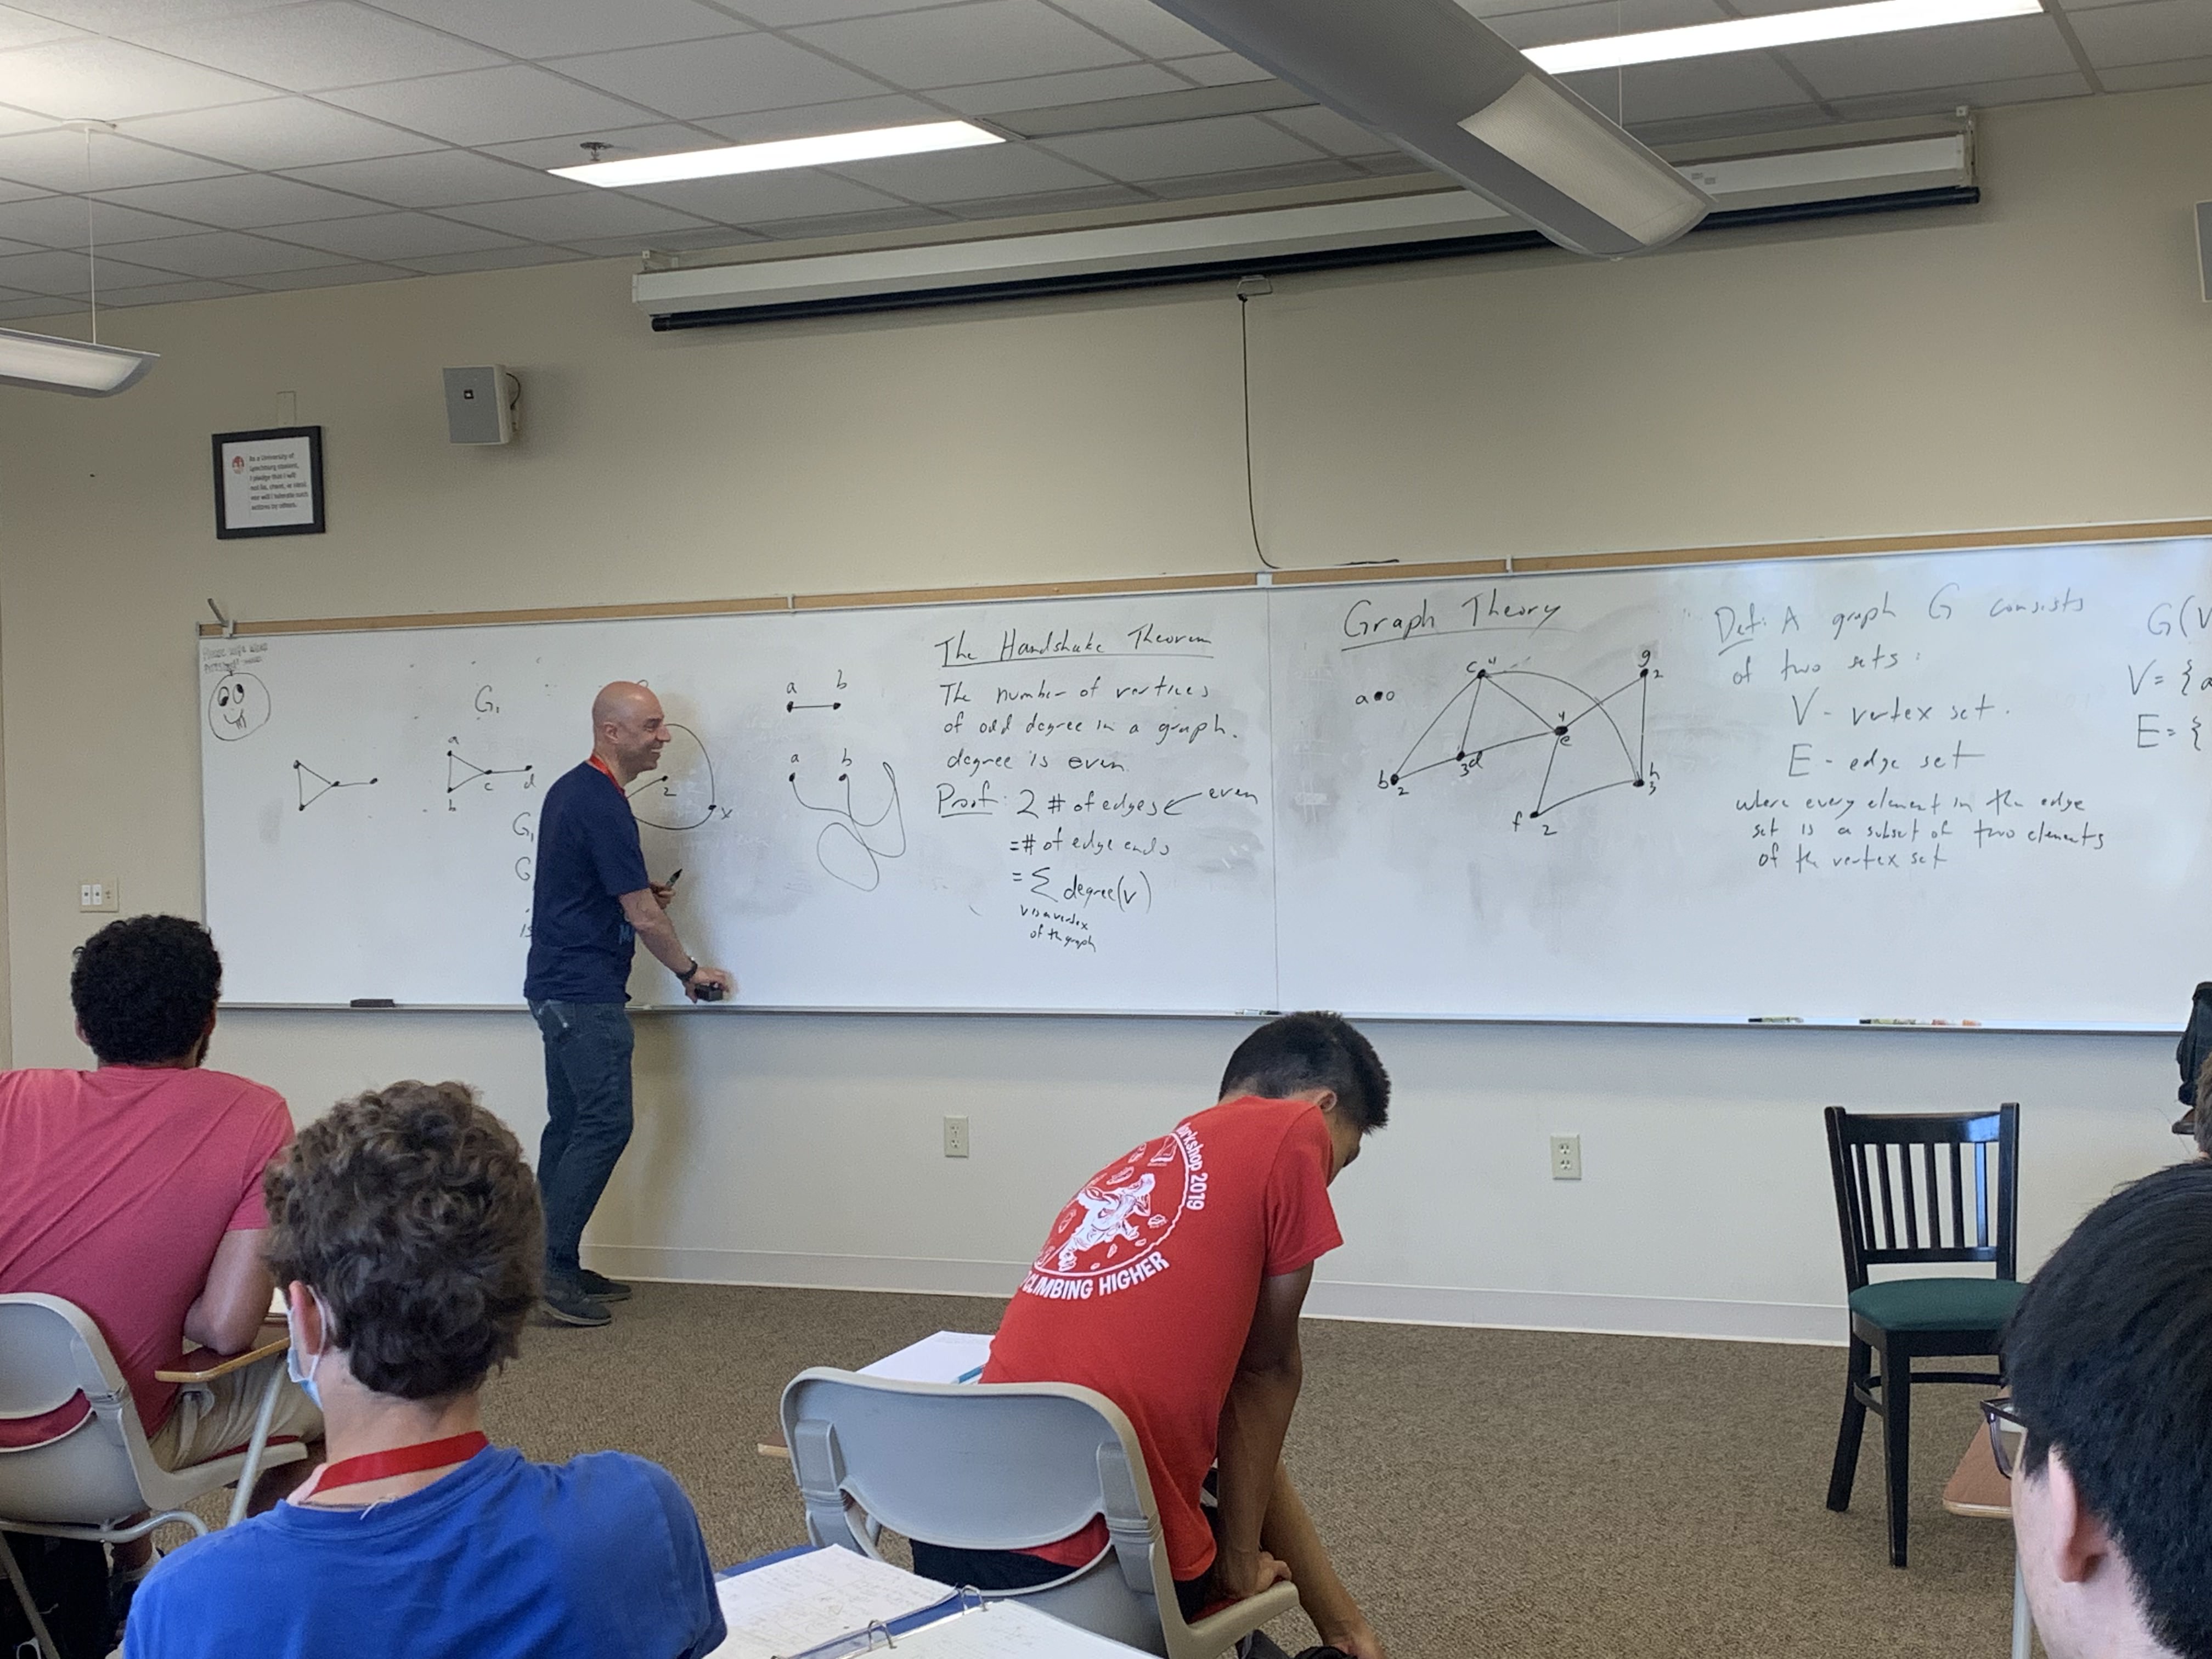 Be a University of
Lynchburg student,
I pledge that I will
not lie, cheat, or steal
nor will I tolerate such
actions by others.
G₁
a
b
c
d
G₁
G
is
2
x
a b
a b
The Handshake Theorem
The number of vertices
of odd degree in a graph.
degree is even.
Proof: 2 # of edges ← even
= # of edge ends
= Σ degree(v)
v is a vertex
of the graph
Graph Theory
a 0
c 4
g 2
e 4
b 2
3 d
h 3
f 2
Def: A graph G consists
of two sets:
V - vertex set.
E - edge set
where every element in the edge
set is a subset of two elements
of the vertex set
G(V
V = { a
E = {
orkshop 2019
CLIMBING HIGHER